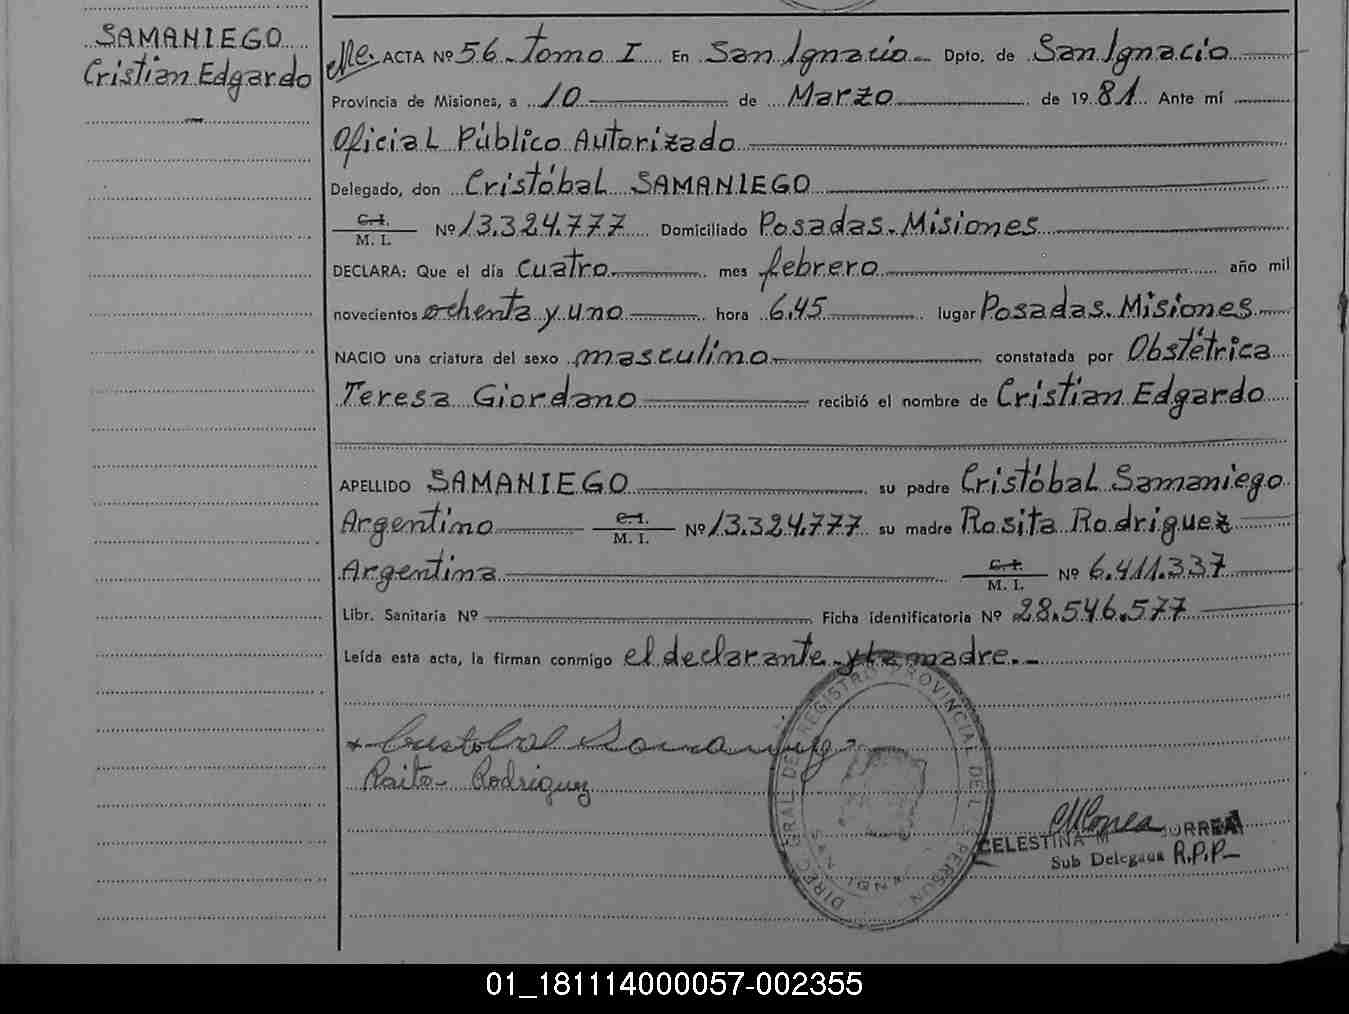 SAMANIEGO
Cristian Edgardo
ACTA Nº 56 - Tomo I En San Ignacio - Dpto. de San Ignacio
Provincia de Misiones, a 10 de Marzo de 1981 Ante mí
Oficial Público Autorizado
Delegado, don Cristóbal SAMANIEGO
C.I.
M. I. Nº 13.324.777 Domiciliado Posadas. Misiones
DECLARA: Que el día cuatro mes febrero año mil
novecientos ochenta y uno hora 6,45 lugar Posadas. Misiones
NACIO una criatura del sexo masculino constatada por Obstétrica
Teresa Giordano recibió el nombre de Cristian Edgardo
APELLIDO SAMANIEGO su padre Cristóbal Samaniego
Argentino C.I.
M. I. Nº 13.324.777 su madre Rosita Rodriguez
Argentina C.I.
M. I. Nº 6.411.337
Libr. Sanitaria Nº Ficha identificatoria Nº 28.546.577
Leída esta acta, la firman conmigo el declarante y la madre. -
Cristobal Samaniego
Rodriguez
DIREC GRAL DEL REGISTRO PROVINCIAL DE L PERSON
SAN IGNA
CELESTINA M CORREA
Sub Delegada R.P.P-
01_181114000057-002355